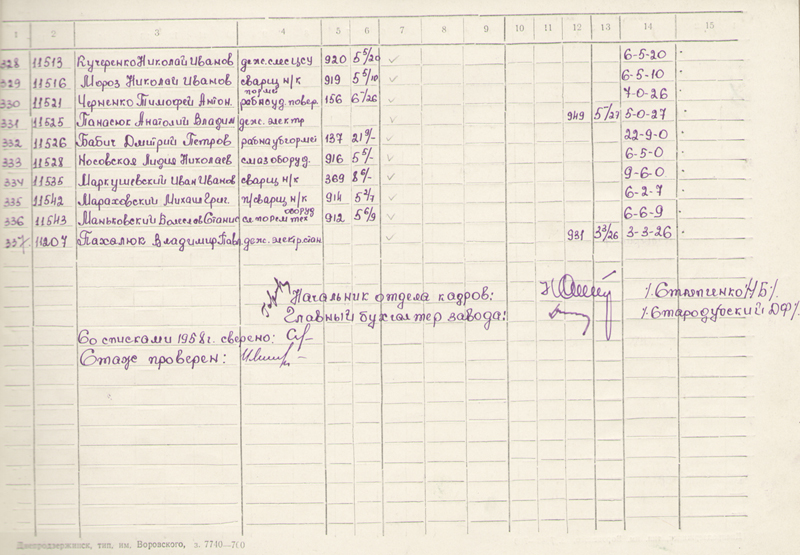 1 2 3 4 5 6 7 8 9 10 11 12 13 14 15
328 11513 Кучеренко Николай Иванов деж. слес цсу 920 5 5/20 ✓ 6-5-20
329 11516 Мороз Николай Иванов сварщ н/к 919 5 5/10 ✓ 6-5-10
330 11521 Черненко Тимофей Антон. 156 6-/26 ✓ 7-0-26
331 11525 Панасюк Анатолий Владим деж. электр ✓ 949 5-/27 5-0-27
332 11526 Бабич Дмитрий Петров 137 21 9/- ✓ 22-9-0
333 11528 Носовская Лидия Николаев смаз оборуд. 916 5 5/- ✓ 6-5-0
334 11535 Маркушевский Иван Иванов сварщ н/к 369 8 6/- ✓ 9-6-0
335 11542 Мараховский Михаил Григ. п/сварщ н/к 914 5 2/7 ✓ 6-2-7
336 11543 Маньковский оборуд 912 5 6/9 ✓ 6-6-9
337 11207 Пахалюк Владимир Павл деж. электр. стан ✓ 931 3 3/26 3-3-26
Начальник отдела кадров: /. Степченко Н Б/.
Главный бухгалтер завода: /. Стародубский Д Ф/.
Со списками 1958 г. сверено:
Стаж проверен:
Днепродзержинск, тип. им. Воровского, з. 7740—700